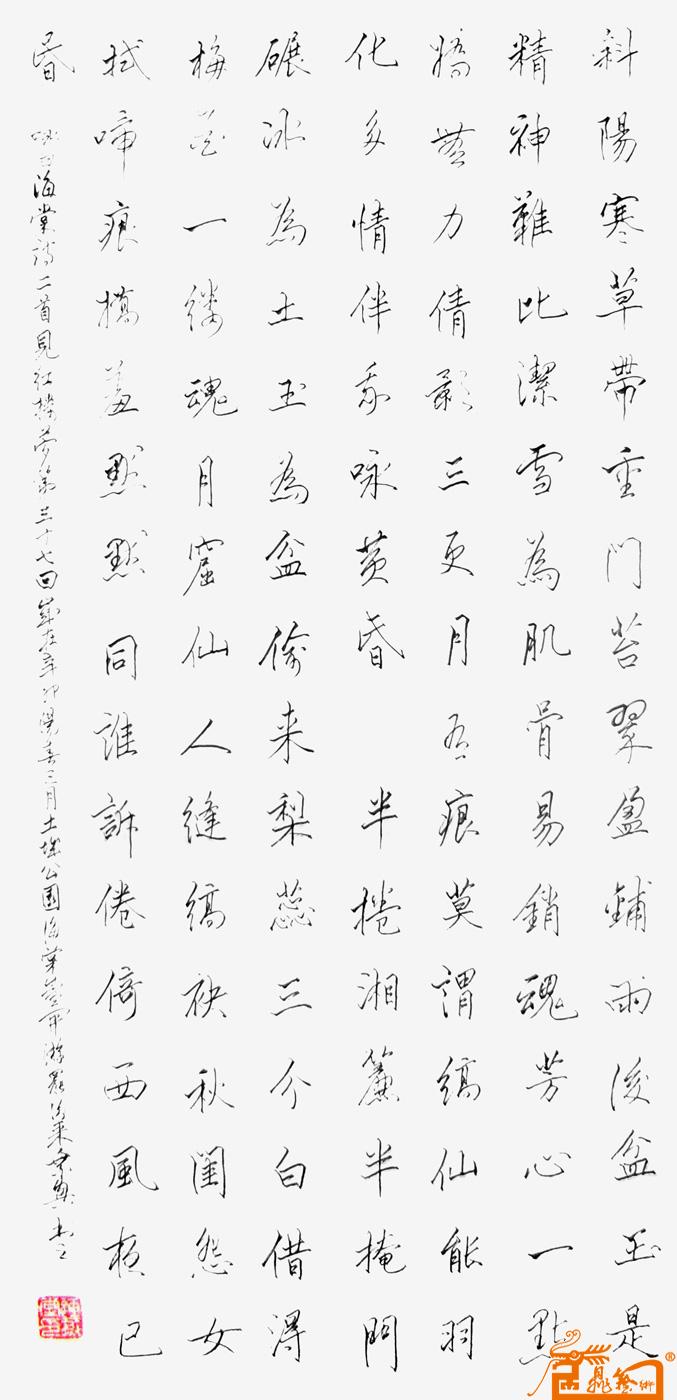 斜陽寒草帶重門苔翠盈鋪雨後盆玉是
精神難比潔雪為肌骨易銷魂芳心一點
嬌無力倩影三更月有痕莫謂縞仙能羽
化多情伴我咏黃昏 半捲湘簾半掩門
碾冰為土玉為盆偷来梨蕊三分白借得
梅花一縷魂月窟仙人縫縞袂秋閨怨女
拭啼痕嬌羞默默同誰訴倦倚西風夜已
昏 咏白海棠詩二首見紅樓夢第三十七回歲在辛卯陽春三月土城公園海棠花開游罷歸来乘興書之